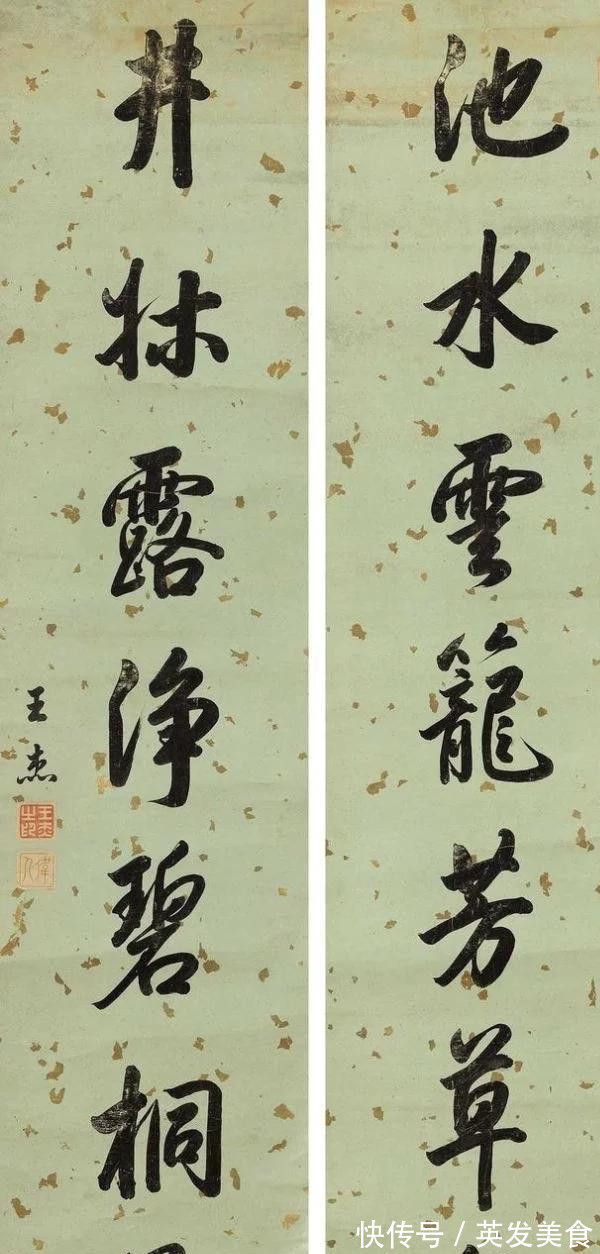 池水雲籠芳草
井牀露淨碧桐
王杰
王杰之印
偉人
快传号 / 英发美食